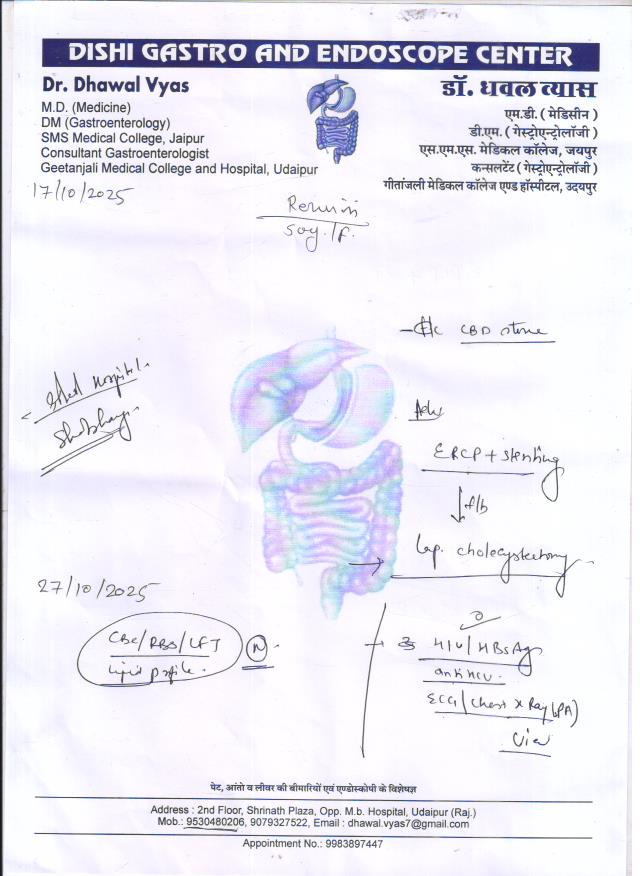 DISHI GASTRO AND ENDOSCOPE CENTER
Dr. Dhawal Vyas
M.D. (Medicine)
DM (Gastroenterology)
SMS Medical College, Jaipur
Consultant Gastroenterologist
Geetanjali Medical College and Hospital, Udaipur
डॉ. धवल व्यास
एम.डी. ( मेडिसीन )
डी.एम. ( गेस्ट्रोएन्ट्रोलॉजी )
एस.एम.एस. मेडिकल कॉलेज, जयपुर
कन्सलटेंट ( गेस्ट्रोएन्ट्रोलॉजी )
गीतांजली मेडिकल कॉलेज एण्ड हॉस्पीटल, उदयपुर
17/10/2025
50y/F.
CBD stone
Adv
ERCP + stenting
↓ f/b
→ Lap. cholecystectomy
27/10/2025
CBC/RBS/LFT
Lipid profile.
N
HIV/HBsAg
anti HCV
ECG/Chest X Ray (PA)
View
पेट, आंतो व लीवर की बीमारियों एवं एण्डोस्कोपी के विशेषज्ञ
Address : 2nd Floor, Shrinath Plaza, Opp. M.b. Hospital, Udaipur (Raj.)
Mob.: 9530480206, 9079327522, Email : dhawal.vyas7@gmail.com
Appointment No.: 9983897447